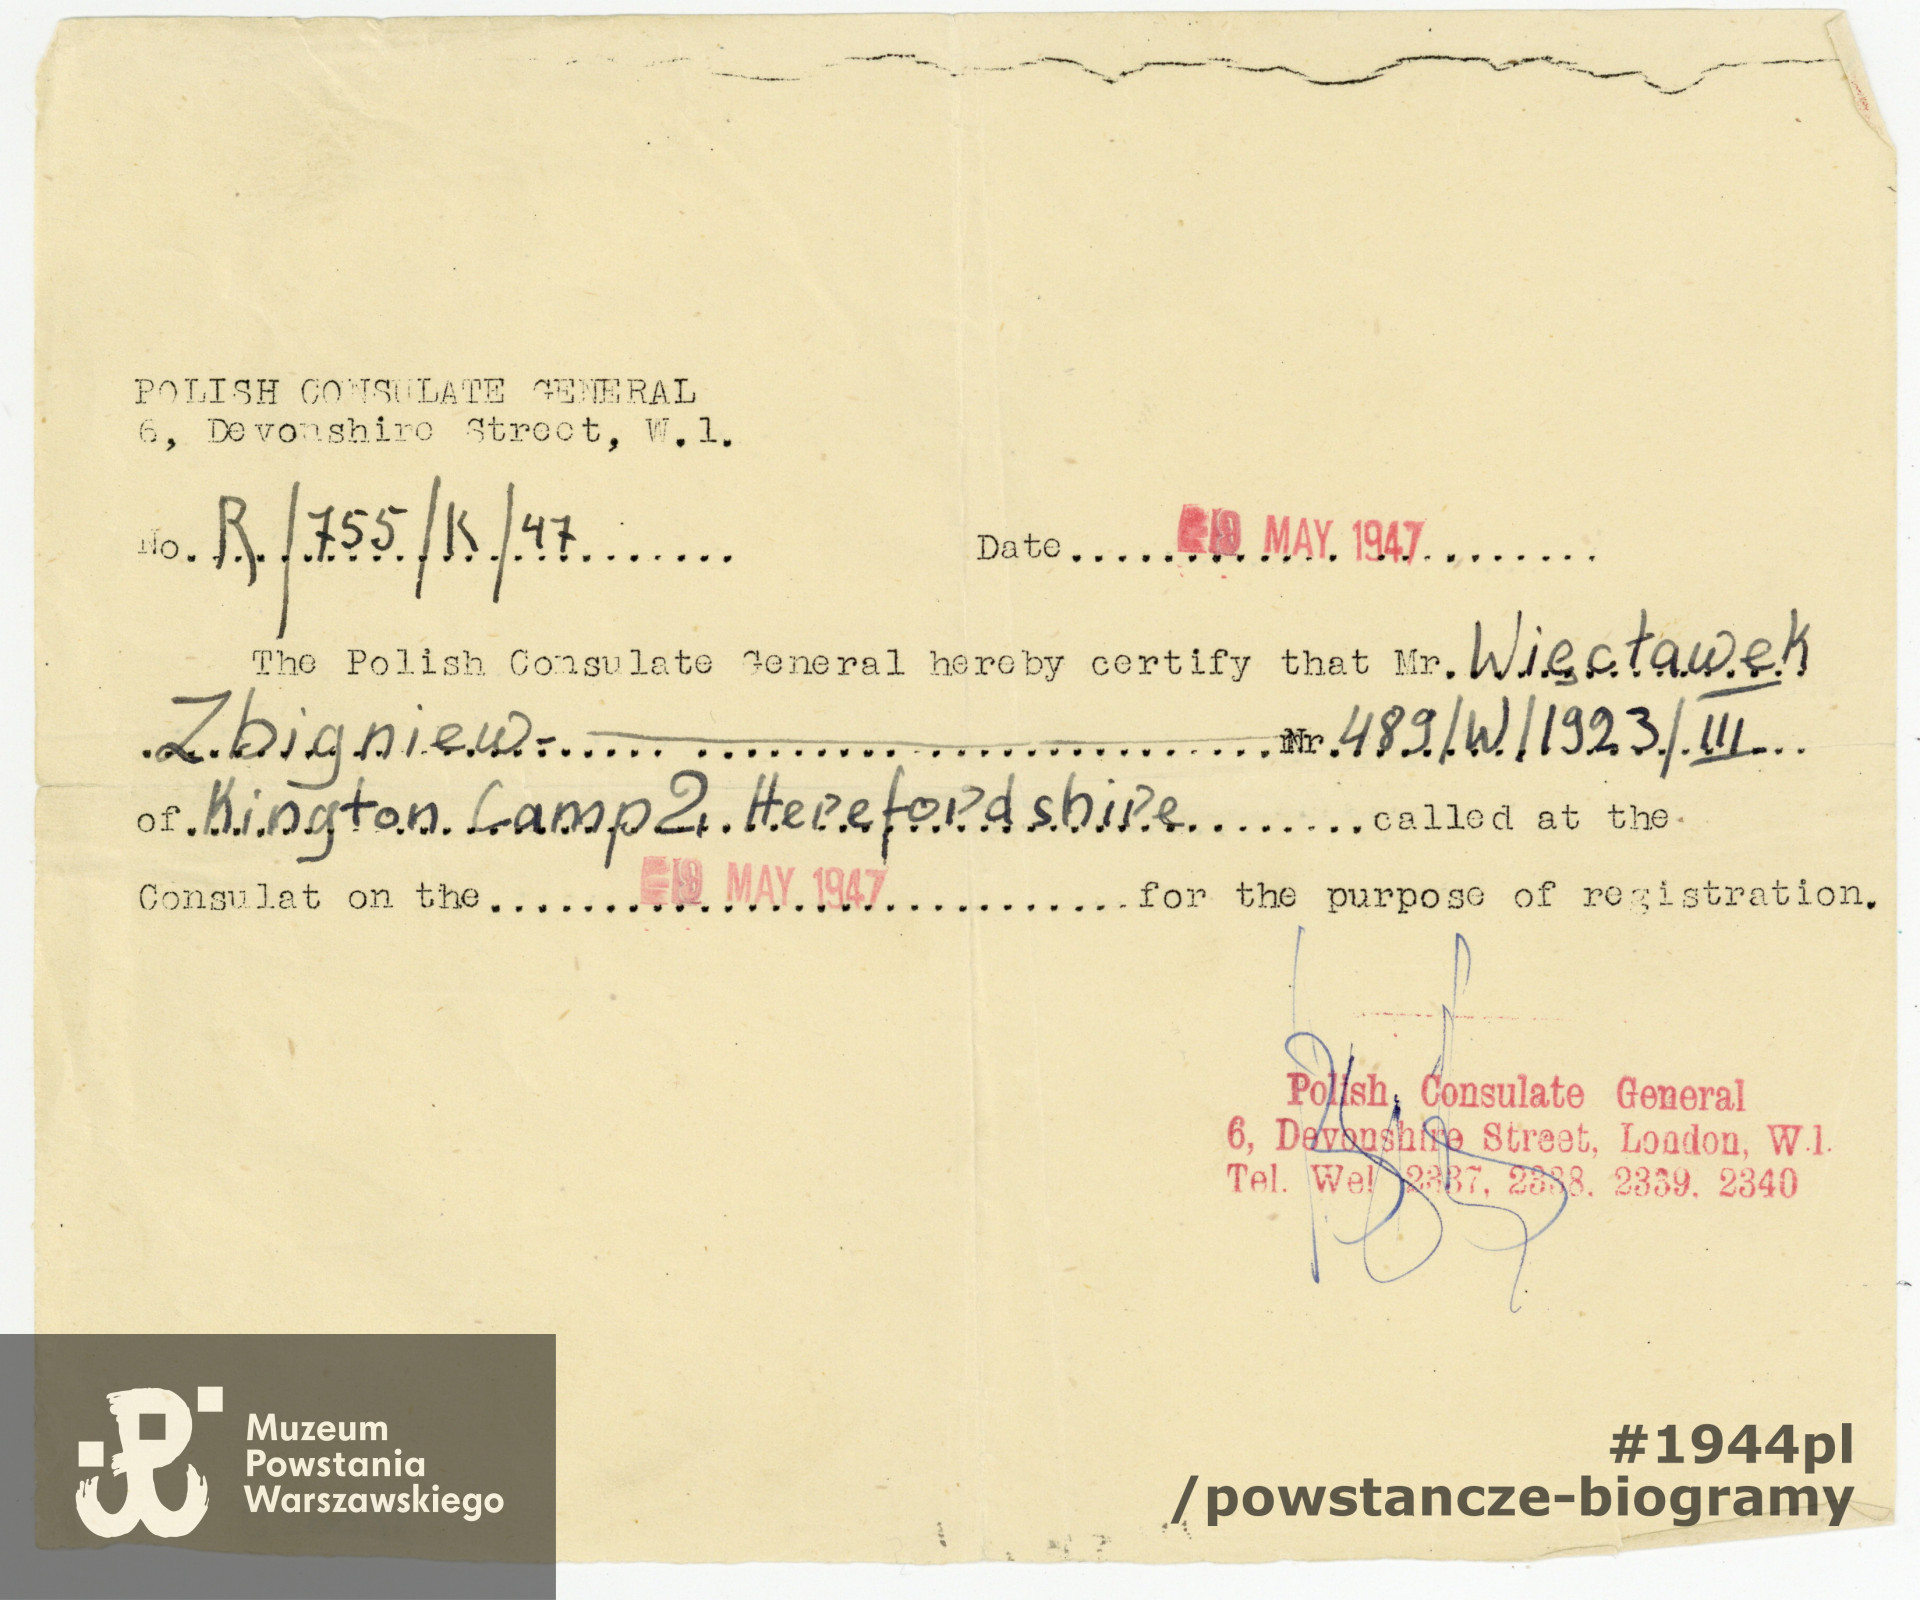 POLISH CONSULATE GENERAL
6, Devonshire Street, W.1.
No. R/755/K/47
Date 9 MAY 1947
The Polish Consulate General hereby certify that Mr. Więcławek
Zbigniew- Nr. 489/W/1923/III
of Kington Camp 2, Herefordshire called at the
Consulat on the 9 MAY 1947 for the purpose of registration.
Polish Consulate General
6, Devonshire Street, London, W.1.
Tel. Wel 2337, 2338. 2339. 2340
Muzeum
Powstania
Warszawskiego
#1944pl
/powstancze-biogramy